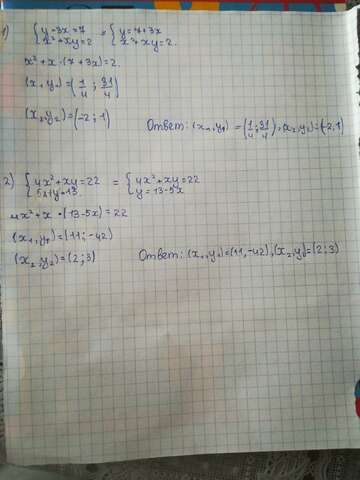 1) { y-3x=7 = { y=7+3x
x²+xy=2 x²+xy=2.
x²+x·(7+3x)=2.
(x₁,y₁)=(1/4; 31/4)
(x₂,y₂)=(-2;1) Ответ: (x₁,y₁)=(1/4;31/4),(x₂,y₂)=(-2,1)
2) { 4x²+xy=22 = { 4x²+xy=22
5x+y=13. y=13-5x
4x²+x·(13-5x)=22
(x₁,y₁)=(11;-42)
(x₂,y₂)=(2;3) Ответ: (x₁,y₁)=(11,-42),(x₂,y₂)=(2;3)